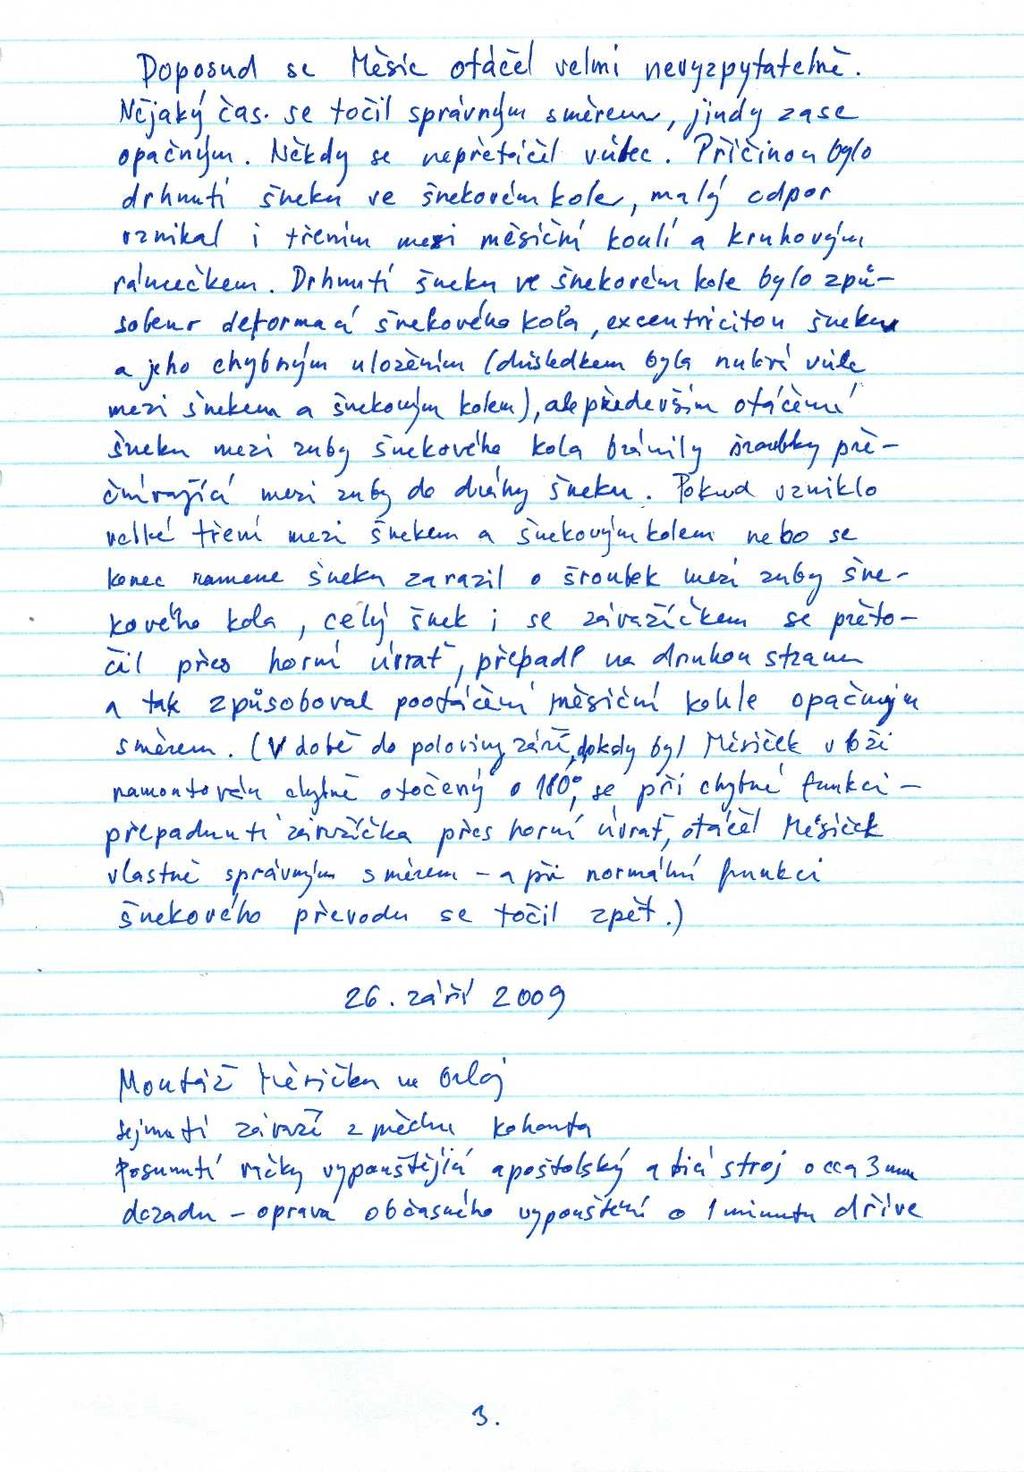 Doposud se Měsíc otáčel velmi nevyzpytatelně.
Nějaký čas se točil správným směrem, jindy zase
opačným. Někdy se nepřetáčel vůbec. Příčinou bylo
drhnutí šneku ve šnekovém kole, malý odpor
vznikal i třením mezi měsíční koulí a kruhovým
rámečkem. Drhnutí šneku ve šnekovém kole bylo způ-
sobeno deformací šnekového kola, excentricitou šneku
a jeho chybným uložením (důsledkem byla nutná vůle
mezi šnekem a šnekovým kolem), ale především otáčení
šneku mezi zuby šnekového kola bránily šroubky pře-
čnívající mezi zuby do dráhy šneku. Pokud vzniklo
velké tření mezi šnekem a šnekovým kolem nebo se
konec ramene šneku zarazil o šroubek mezi zuby šne-
kového kola, celý šnek i se závažíčkem se přeto-
čil přes horní úvrať, přepadl na druhou stranu
a tak způsoboval pootáčení měsíční koule opačným
směrem. (V době do poloviny září, dokdy byl Měsíček v loži
namontován chybně otočený o 180°, se při chybné funkci –
přepadnutí závažíčka přes horní úvrať, otáčel Měsíček
vlastně správným směrem – a při normální funkci
šnekového převodu se točil zpět.)
26. září 2009
Montáž Měsíčku na Orloj
Sejmutí závaží z měchu kohouta
Posunutí ráčky vypouštějící apoštolský a bicí stroj o cca 3 mm
dozadu – oprava občasného vypouštění o 1 minutu dříve
3.